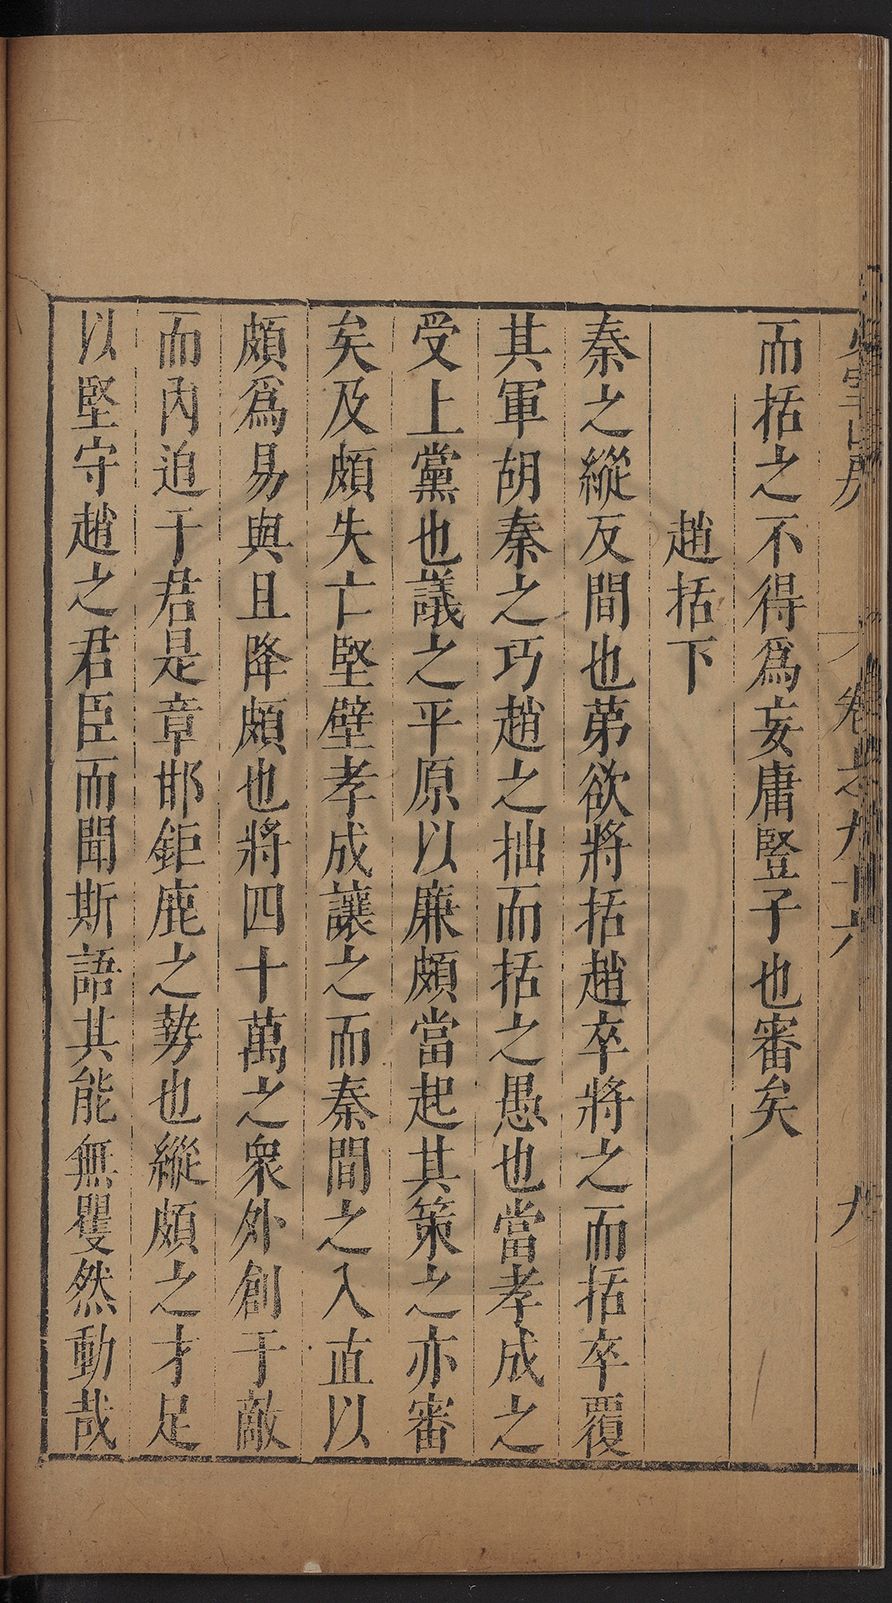 卷之九十六 九
而括之不得爲妄庸豎子也審矣
趙括下
秦之縱反間也苐欲將括趙卒將之而括卒覆
其軍胡秦之巧趙之拙而括之愚也當孝成之
受上黨也議之平原以廉頗當起其策之亦審
矣及頗失亡堅壁孝成讓之而秦間之入直以
頗爲易與且降頗也將四十萬之衆外創于敵
而內迫于君是章邯鉅鹿之勢也縱頗之才足
以堅守趙之君臣而聞斯語其能無瞿然動哉